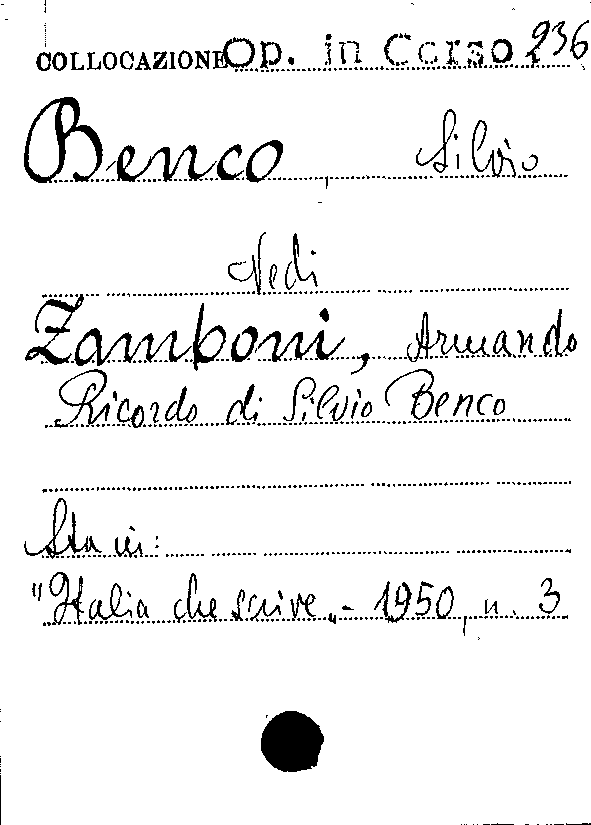 COLLOCAZIONE Op. in Corso 236
Benco, Silvio
Vedi
Zamboni, Armando
Ricordo di Silvio Benco
Sta in:
"Italia che scrive„ - 1950, n. 3